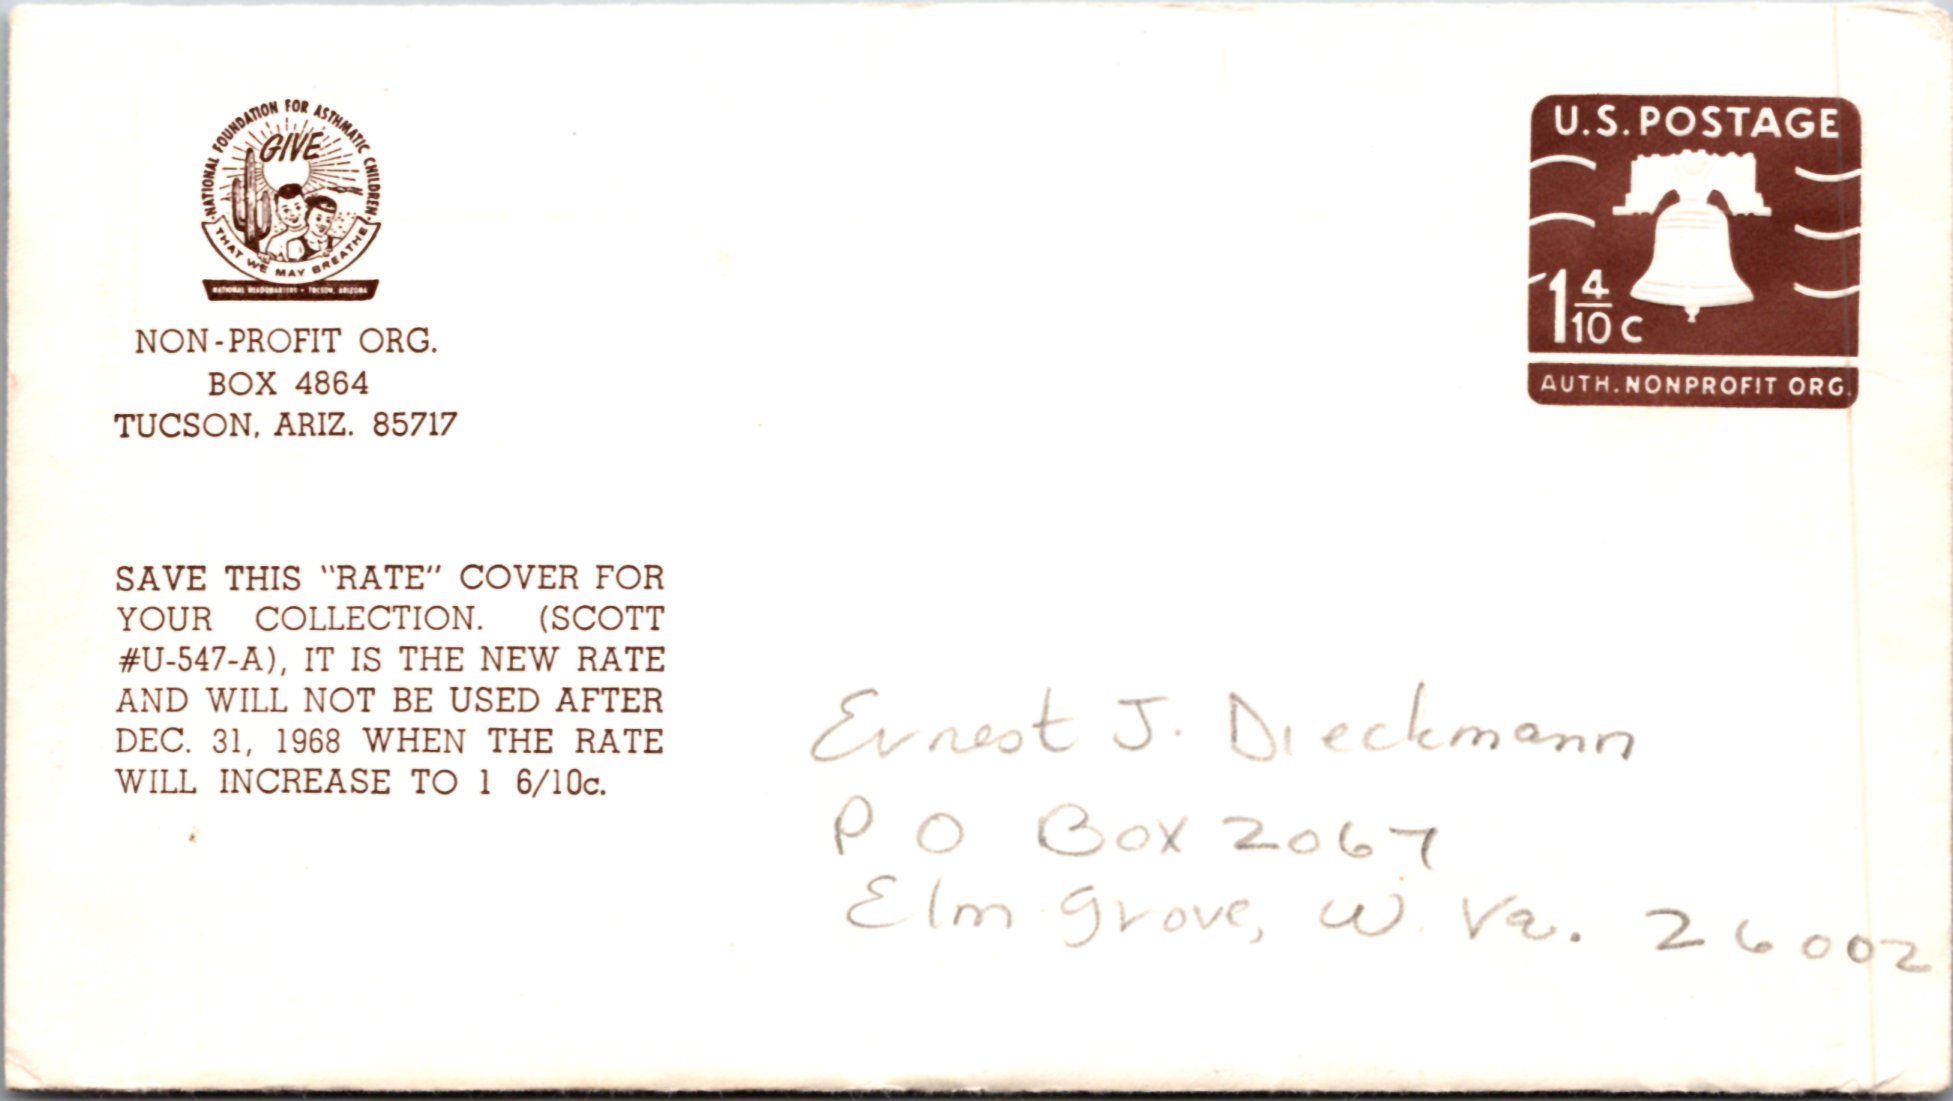 NATIONAL FOUNDATION FOR ASTHMATIC CHILDREN
GIVE
THAT WE MAY BREATHE
NATIONAL HEADQUARTERS • TUCSON, ARIZONA
NON-PROFIT ORG.
BOX 4864
TUCSON, ARIZ. 85717
U.S. POSTAGE
1 4/10 c
AUTH. NONPROFIT ORG.
SAVE THIS "RATE" COVER FOR
YOUR COLLECTION. (SCOTT
#U-547-A), IT IS THE NEW RATE
AND WILL NOT BE USED AFTER
DEC. 31, 1968 WHEN THE RATE
WILL INCREASE TO 1 6/10c.
Ernest J. Dieckmann
P O Box 2067
Elm Grove, W. Va. 26002